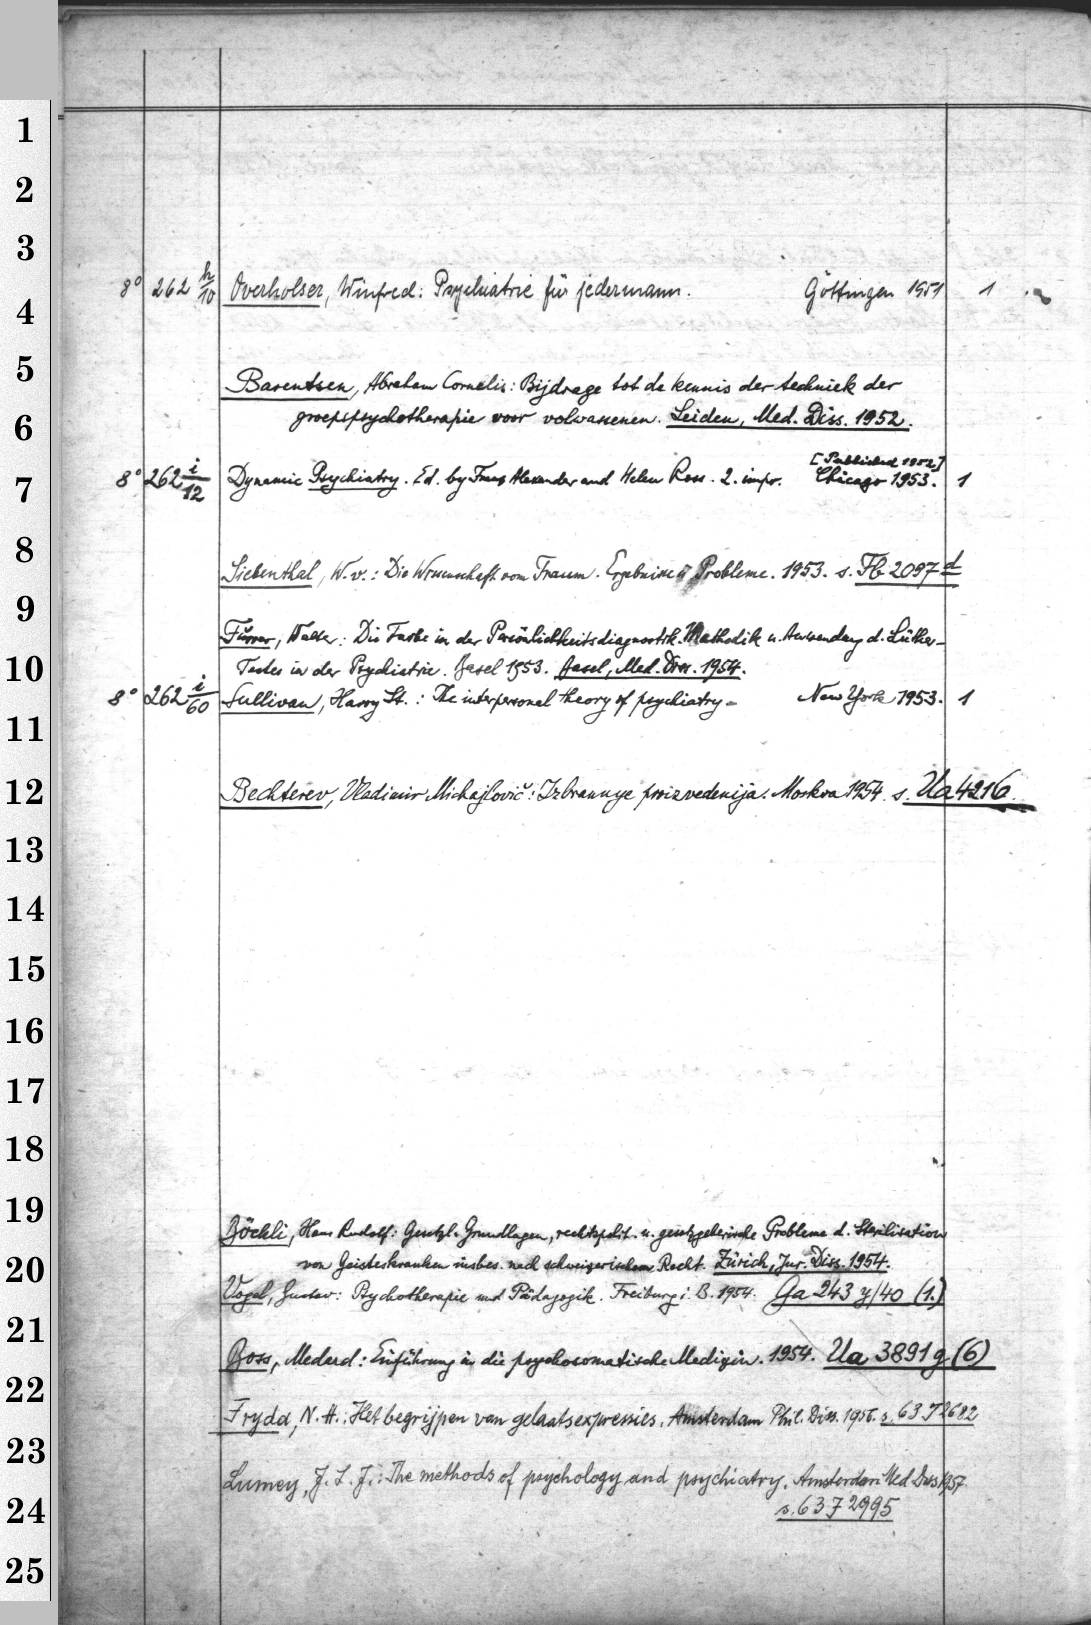 1
2
3
8° 262 h/10 Overholser, Winfred: Psychiatrie für jedermann. Göttingen 1951 1
4
5
Barentsen, Abraham Cornelis: Bijdrage tot de kennis der techniek der
6
groepspsychotherapie voor volwassenen. Leiden, Med. Diss. 1952.
[Published 1952]
7
8° 262 i/12 Dynamic Psychiatry. Ed. by Franz Alexander and Helen Ross. 2. impr. Chicago 1953. 1
8
Siebenthal, W. v.: Die Wissenschaft vom Traum. Ergebnisse u. Probleme. 1953. s. Fb 2097 d
9
Furrer, Walter: Die Farbe in der Persönlichkeitsdiagnostik. Methodik u. Anwendung d. Lüscher-
10
Testes in der Psychiatrie. Basel 1953. Basel, Med. Diss. 1954.
8° 262 i/60 Sullivan, Harry St.: The interpersonal theory of psychiatry. New York 1953. 1
11
12
Bechterev, Vladimir Michajlovič: Izbrannye proizvedenija. Moskva 1954 s. Ua 4216.
13
14
15
16
17
18
19
Böckli, Hans Rudolf: Gesetzl. Grundlagen, rechtspolit. u. gesetzgeberische Probleme d. Sterilisation
20
von Geisteskranken insbes. nach schweizerischem Recht. Zürich, Jur. Diss. 1954.
Vogel, Gustav: Psychotherapie und Pädagogik. Freiburg i. B. 1954. Ga 243 y/40 (1.)
21
Boss, Medard: Einführung in die psychosomatische Medizin. 1954. Ua 3891 g (6)
22
Frijda, N. H.: Het begrijpen van gelaatsexpressies. Amsterdam Phil. Diss. 1956. s. 63 J 2682
23
Lumey, J. L. J.: The methods of psychology and psychiatry. Amsterdam Med. Diss. 1957.
24
s. 63 J 2995
25